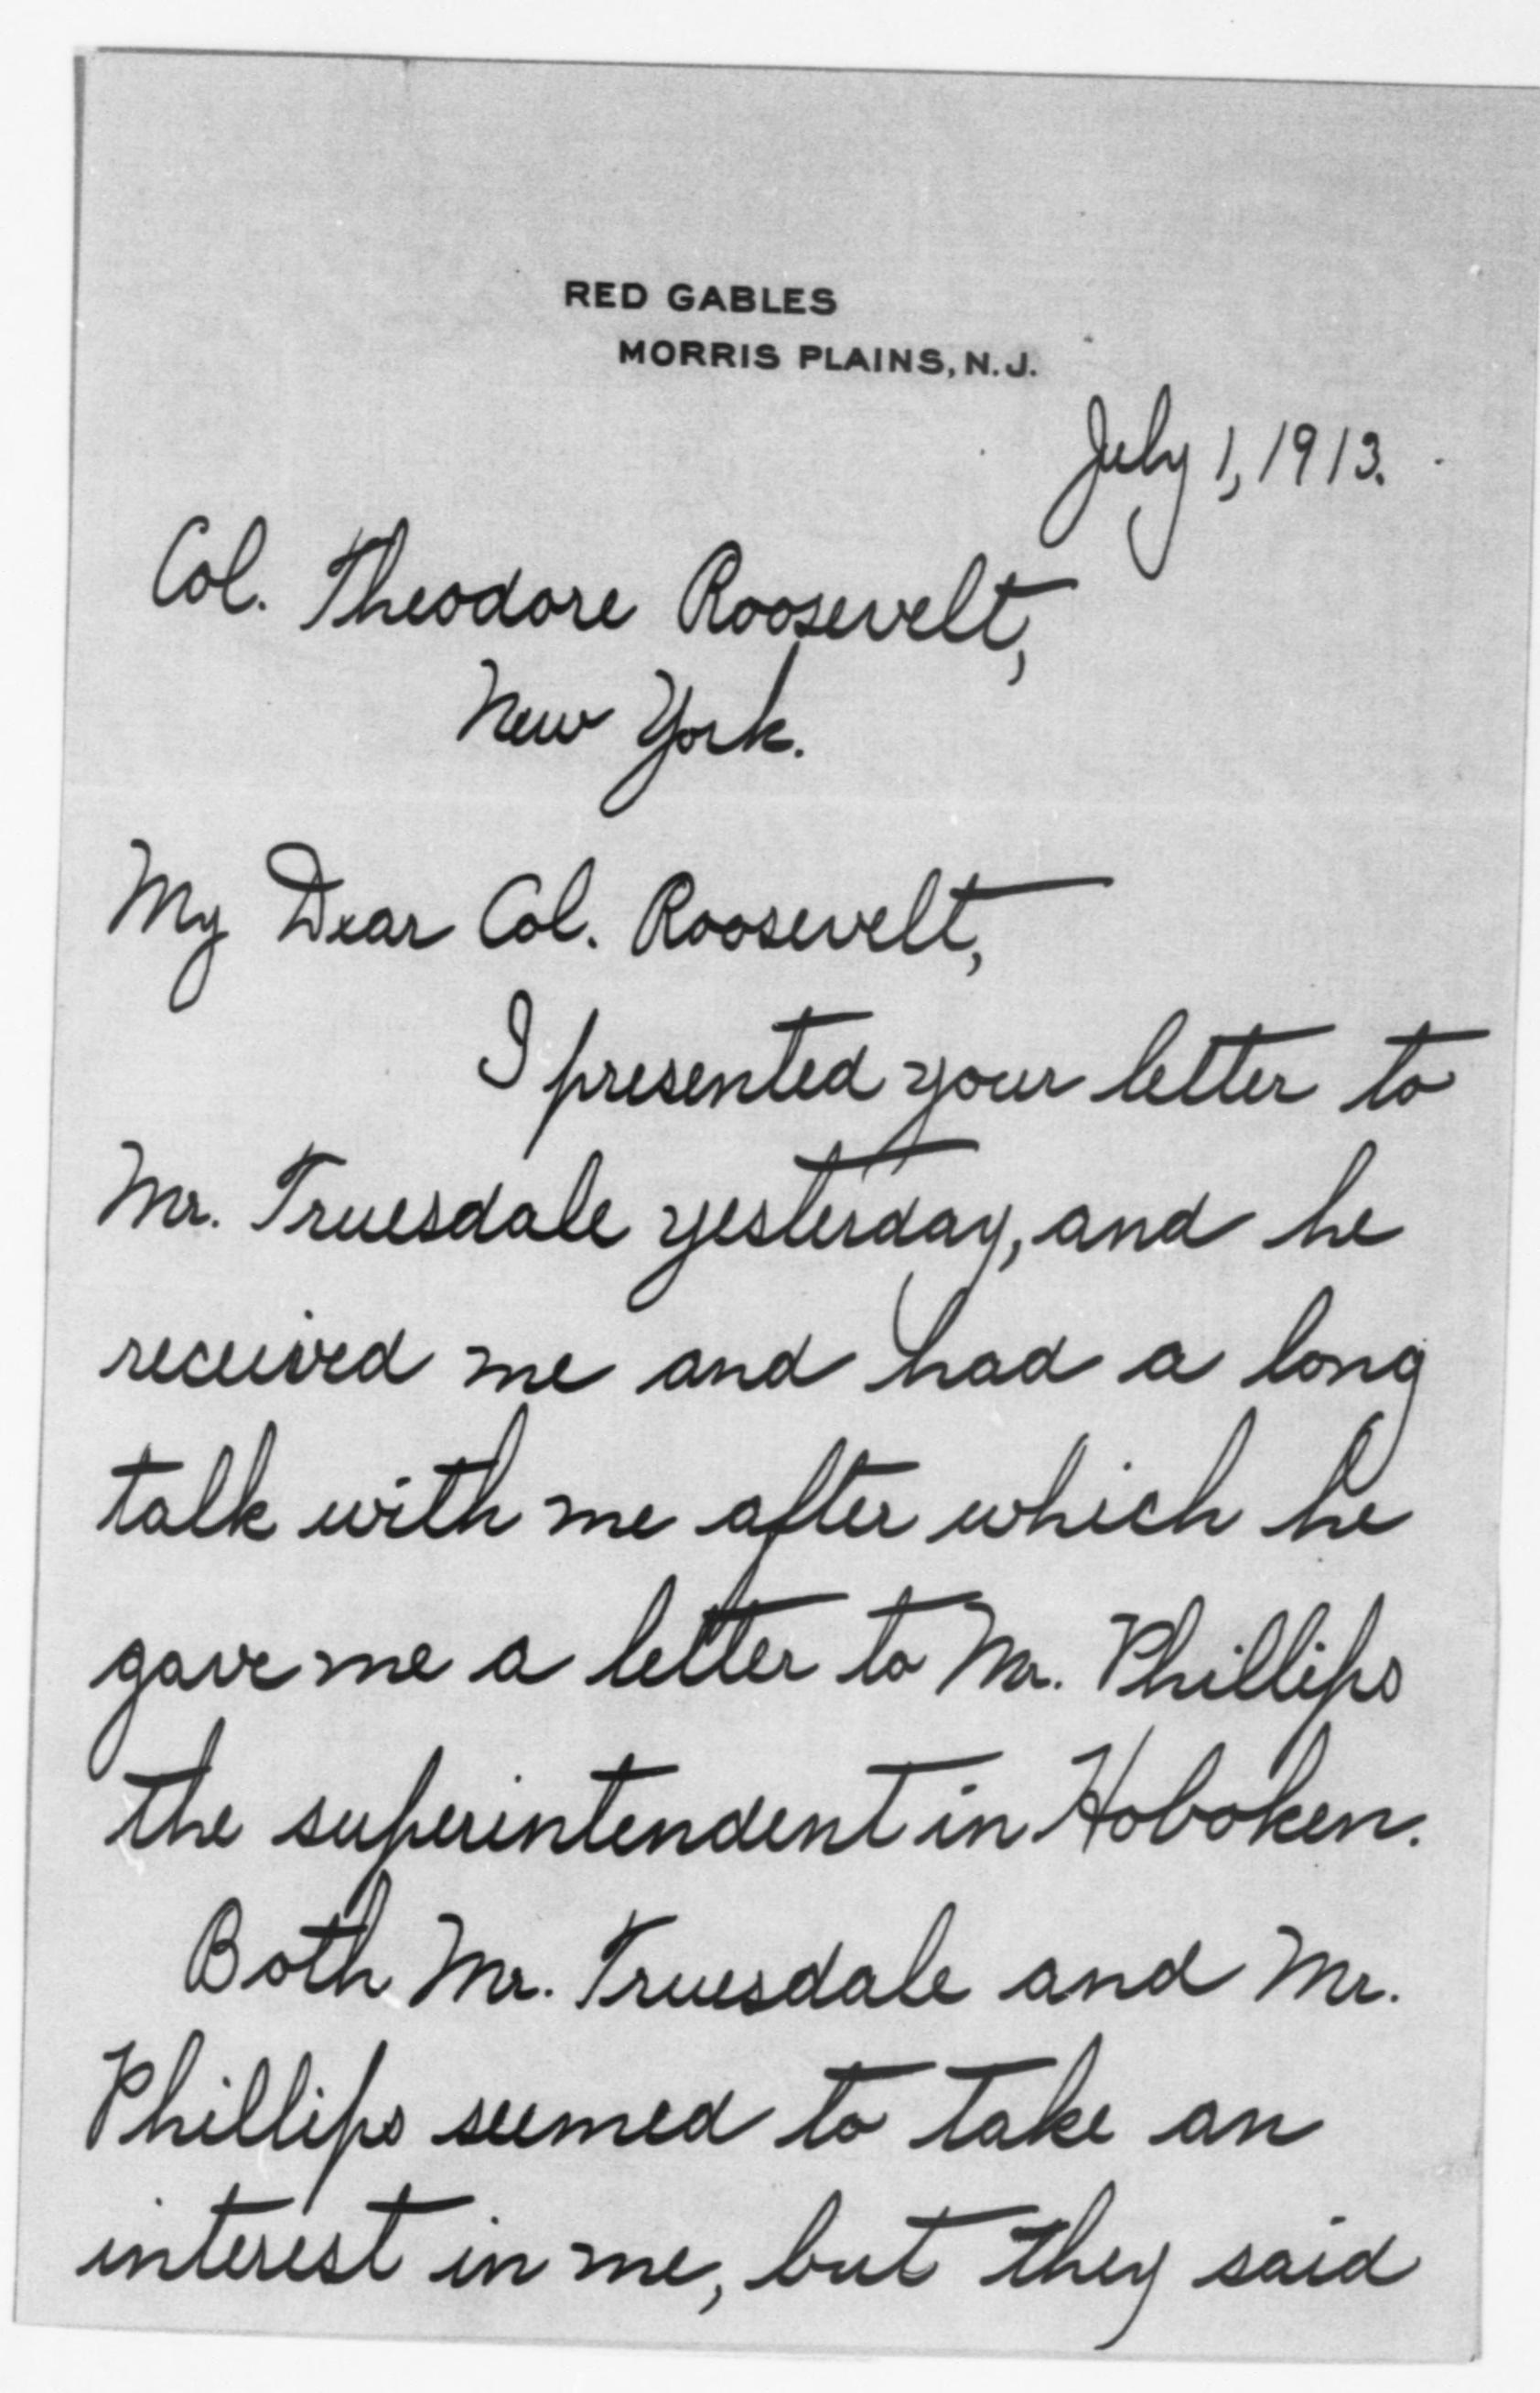 RED GABLES
MORRIS PLAINS, N.J.
July 1, 1913.
Col. Theodore Roosevelt,
New York.
My Dear Col. Roosevelt,
I presented your letter to
Mr. Truesdale yesterday, and he
received me and had a long
talk with me after which he
gave me a letter to Mr. Phillips
the superintendent in Hoboken.
Both Mr. Truesdale and Mr.
Phillips seemed to take an
interest in me, but they said